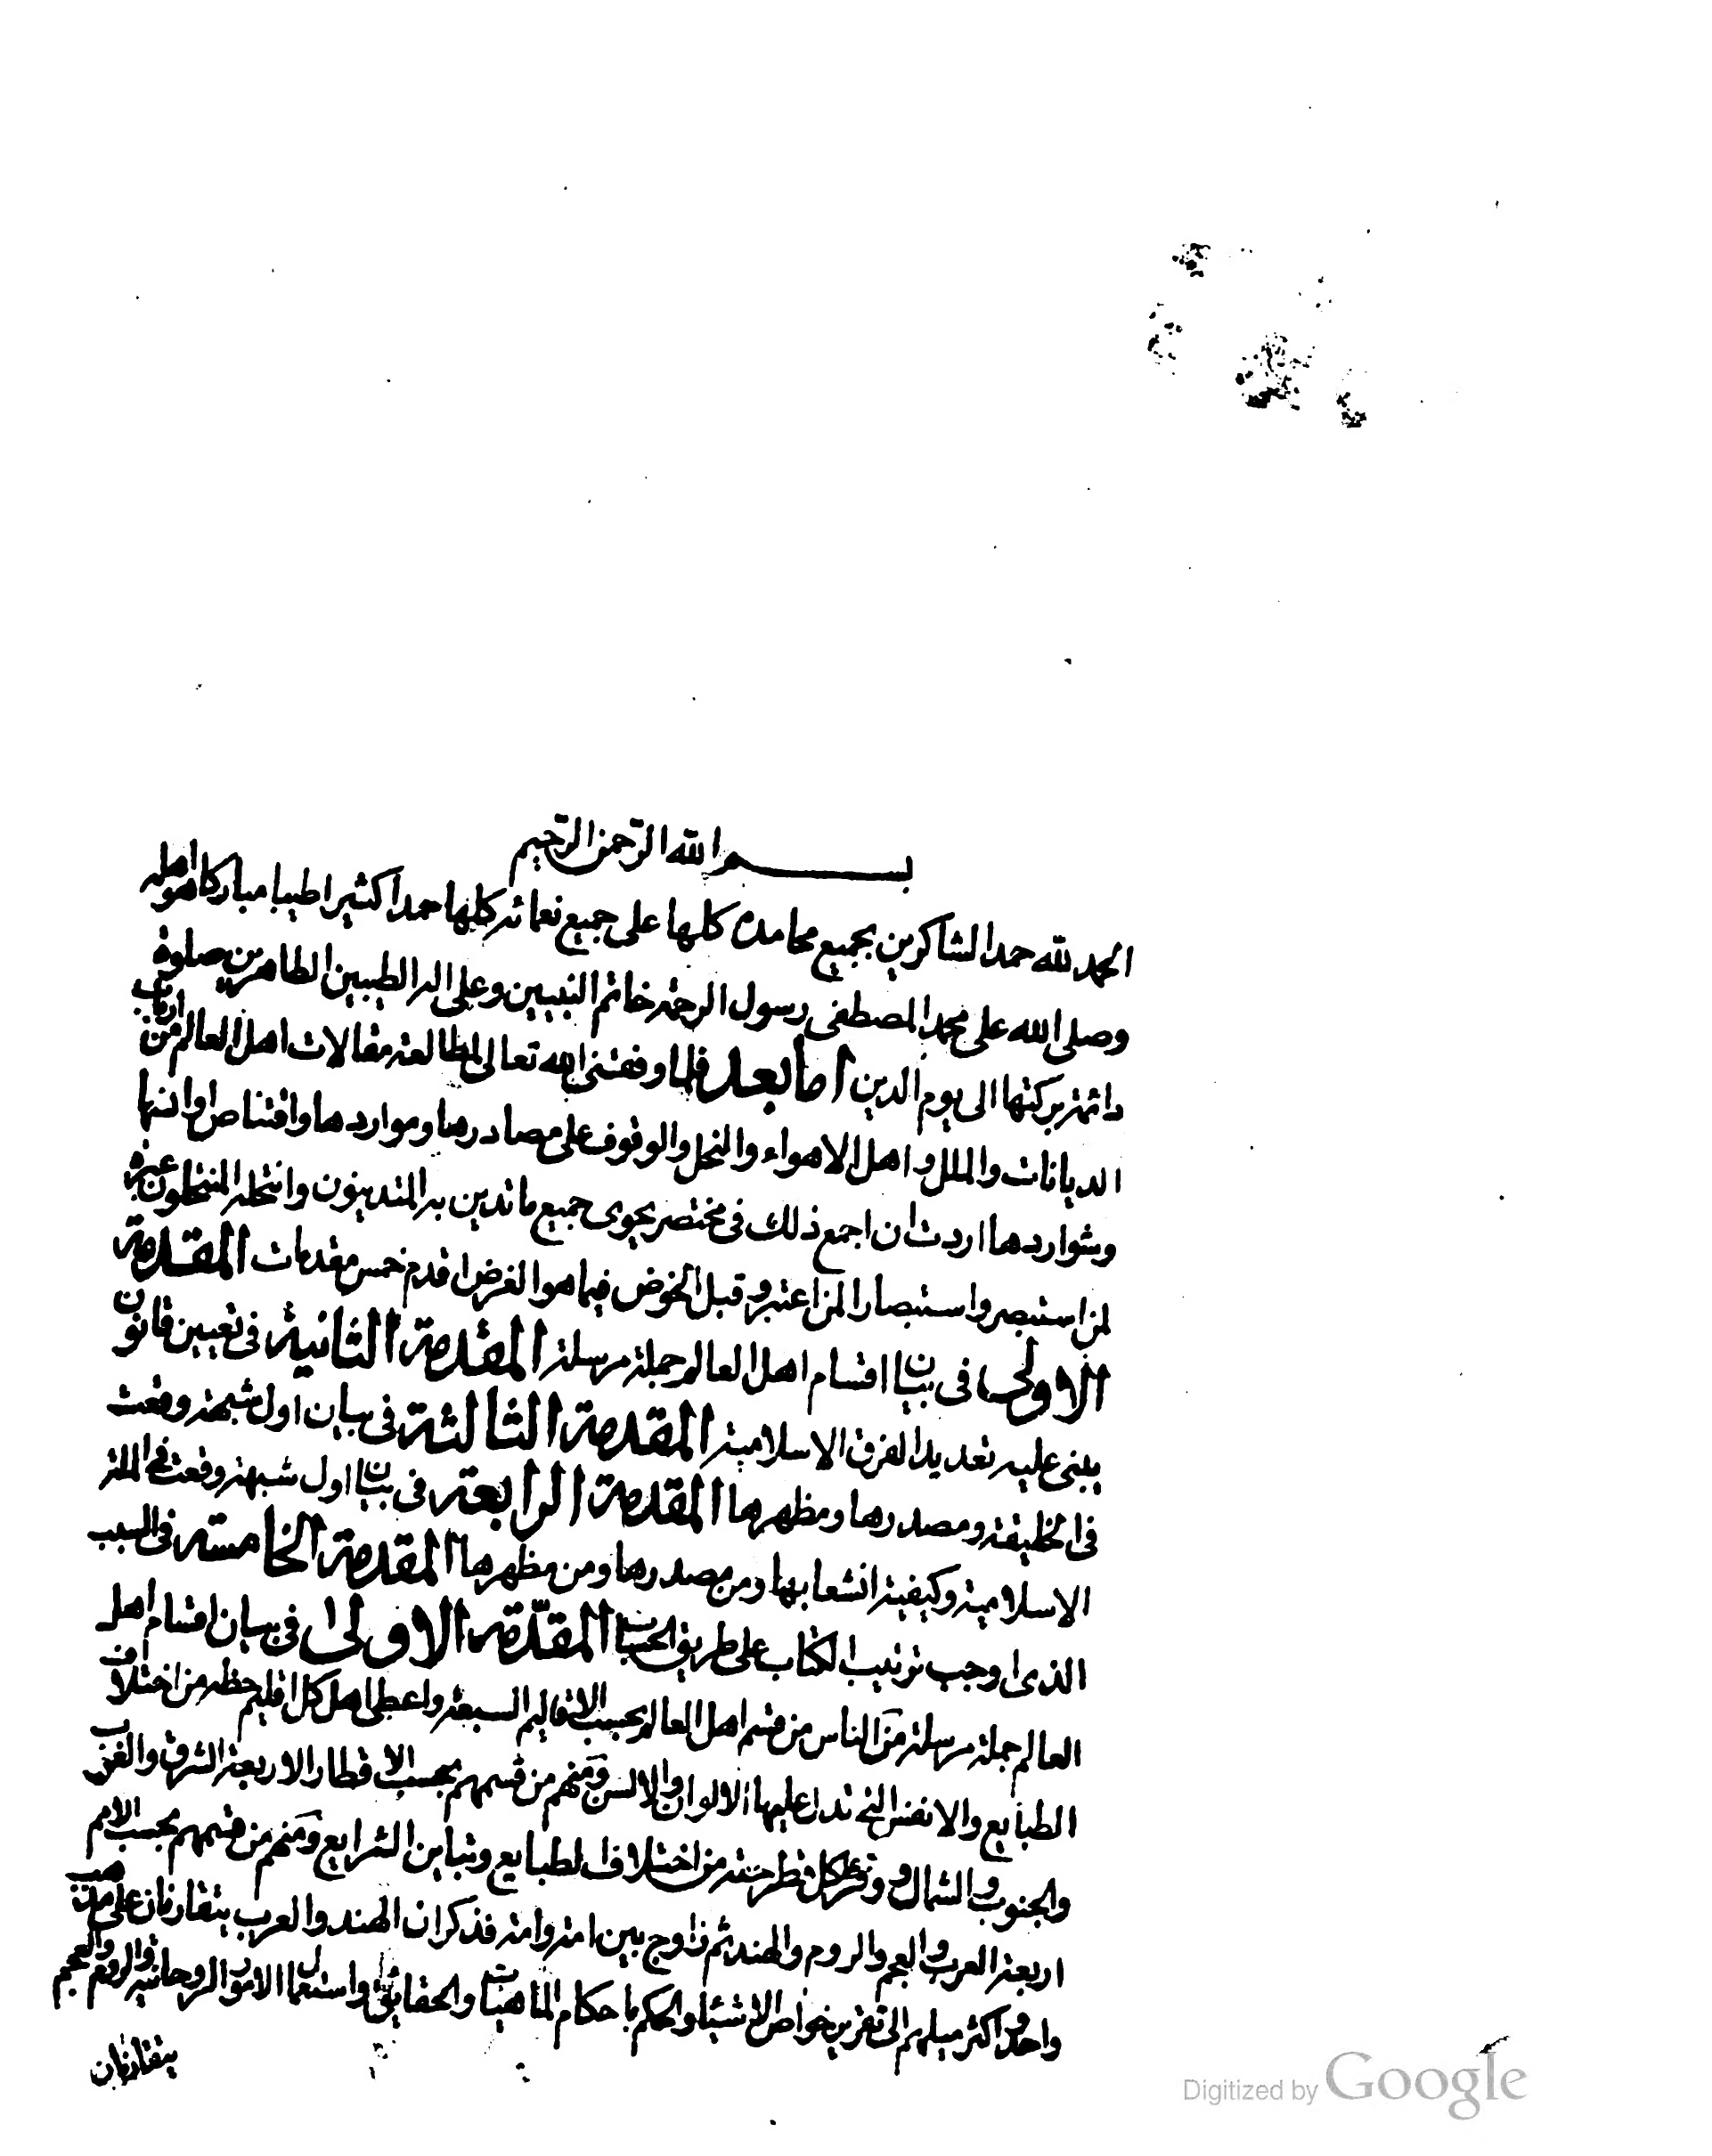 بسم الله الرحمن الرحيم
الحمد لله حمد الشاكرين بجميع محامده كلها على جميع نعمائه كلها حمدا كثيرا طيبا مباركا هو اهله
وصلى الله على محمد المصطفى رسول الرحمة خاتم النبيين وعلى اله الطيبين الطاهرين صلوة
دائمة بركتها الى يوم الدين اما بعد فلما وفقنى الله تعالى لمطالعة مقالات اهل العالم من ارباب
الديانات والملل واهل الاهواء والنحل والوقوف على مصادرها ومواردها واقتناص اوانسها
وشواردها اردت ان اجمع ذلك فى مختصر يحوى جميع ما تدين به المتدينون وانتحله المنتحلون عبرة
لمن استبصر واستبصارا لمن اعتبر وقبل الخوض فيما هو الغرض اقدم خمس مقدمات المقدمة
الاولى فى بيان اقسام اهل العالم جملة مرسلة المقدمة الثانية فى تعيين قانون
يبنى عليه تعديد الفرق الاسلامية المقدمة الثالثة فى بيان اول شبهة وقعت
فى الخليقة ومصدرها ومظهرها المقدمة الرابعة فى بيان اول شبهة وقعت فى الملة
الاسلامية وكيفية انشعابها ومن مصدرها ومن مظهرها المقدمة الخامسة فى السبب
الذى اوجب ترتيب الكتاب على طريق الحساب المقدمة الاولى فى بيان اقسام اهل
العالم جملة مرسلة من الناس من قسم اهل العالم بحسب الاقاليم السبعة واعطى اهل كل اقليم حظه من اختلاف
الطبايع والانفس التى تدل عليها الالوان والالسن ومنهم من قسمهم بحسب الاقطار الاربعة الشرق والغرب
والجنوب والشمال و وفر على كل قطر حقه من اختلاف الطبايع وتباين الشرايع ومنهم من قسمهم بحسب الامم
اربعة العرب والعجم والروم والهند ثم زاوج بين امة وامة فذكر ان الهند والعرب يتقاربان على مذهب
واحد واكثر ميلهم الى تقرير خواص الاشياء والحكم باحكام الماهيات والحقايق واستعمال الامور الروحانية والروم والعجم
يتقاربان
Digitized by Google